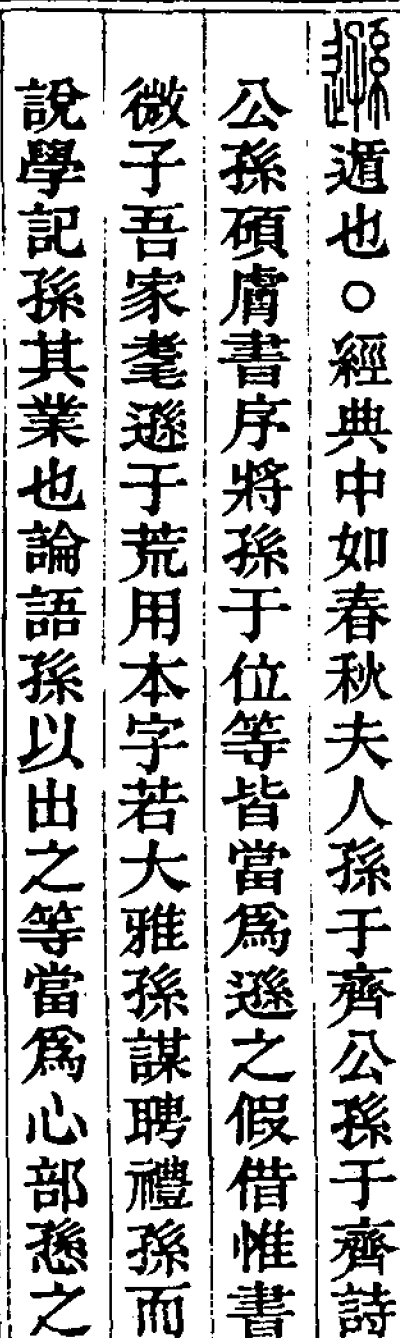 遜遁也○經典中如春秋夫人孫于齊公孫于齊詩
公孫碩膚書序將孫于位等皆當爲遜之假借惟書
微子吾家耄遜于荒用本字若大雅孫謀聘禮孫而
說學記孫其業也論語孫以出之等當爲心部愻之